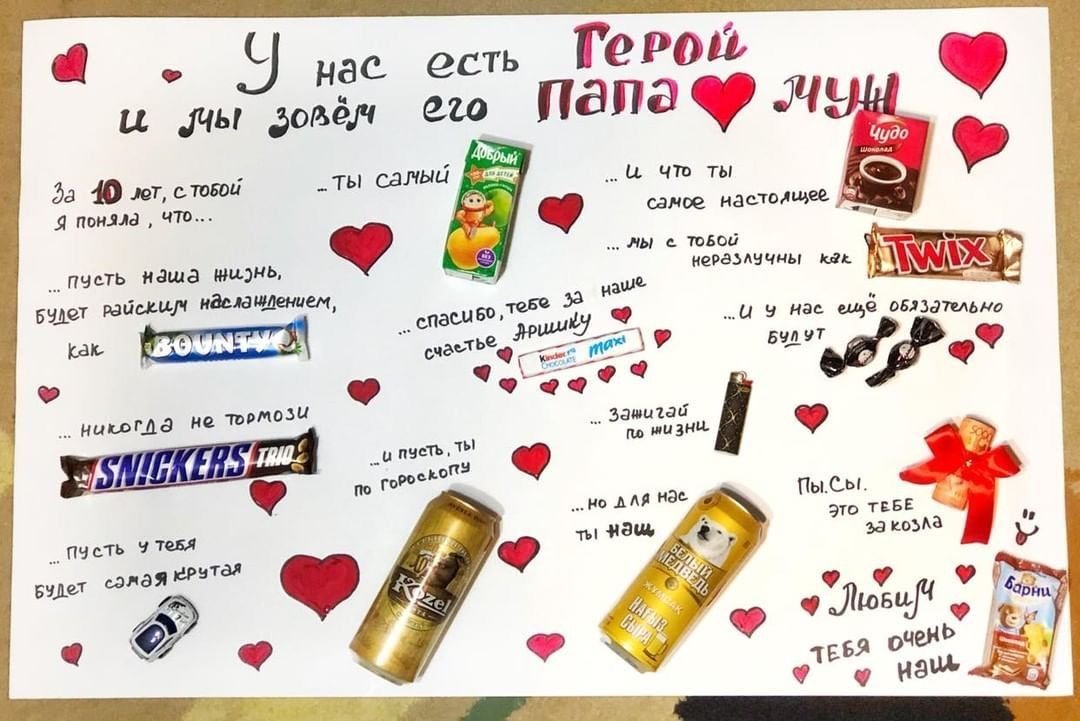 У нас есть Герой
и мы зовём его папа муж
За 10 лет, с тобой
я поняла, что...
...ты самый
Добрый
для детей
...и что ты
самое настоящее
Чудо
Шоколад
...мы с тобой
неразлучны как
TWIX
...пусть наша жизнь,
будет райским наслаждением,
как
BOUNTY
...спасибо, тебе за наше
счастье Аришику
Kinder
CHOCOLATE
maxi
...и у нас ещё обязательно
будут
...никогда не тормози
SNICKERS TRIO
...Зажигай
по жизни
...и пусть, ты
по гороскопу
Kozel
...но для нас
ты наш
БЕЛЫЙ
МЕДВЕДЬ
НАҒЫЗ
СЫРА
Пы.Сы.
это тебе
за козла
5000
...пусть у тебя
будет самая крутая
Любим
тебя очень
наш
Барни